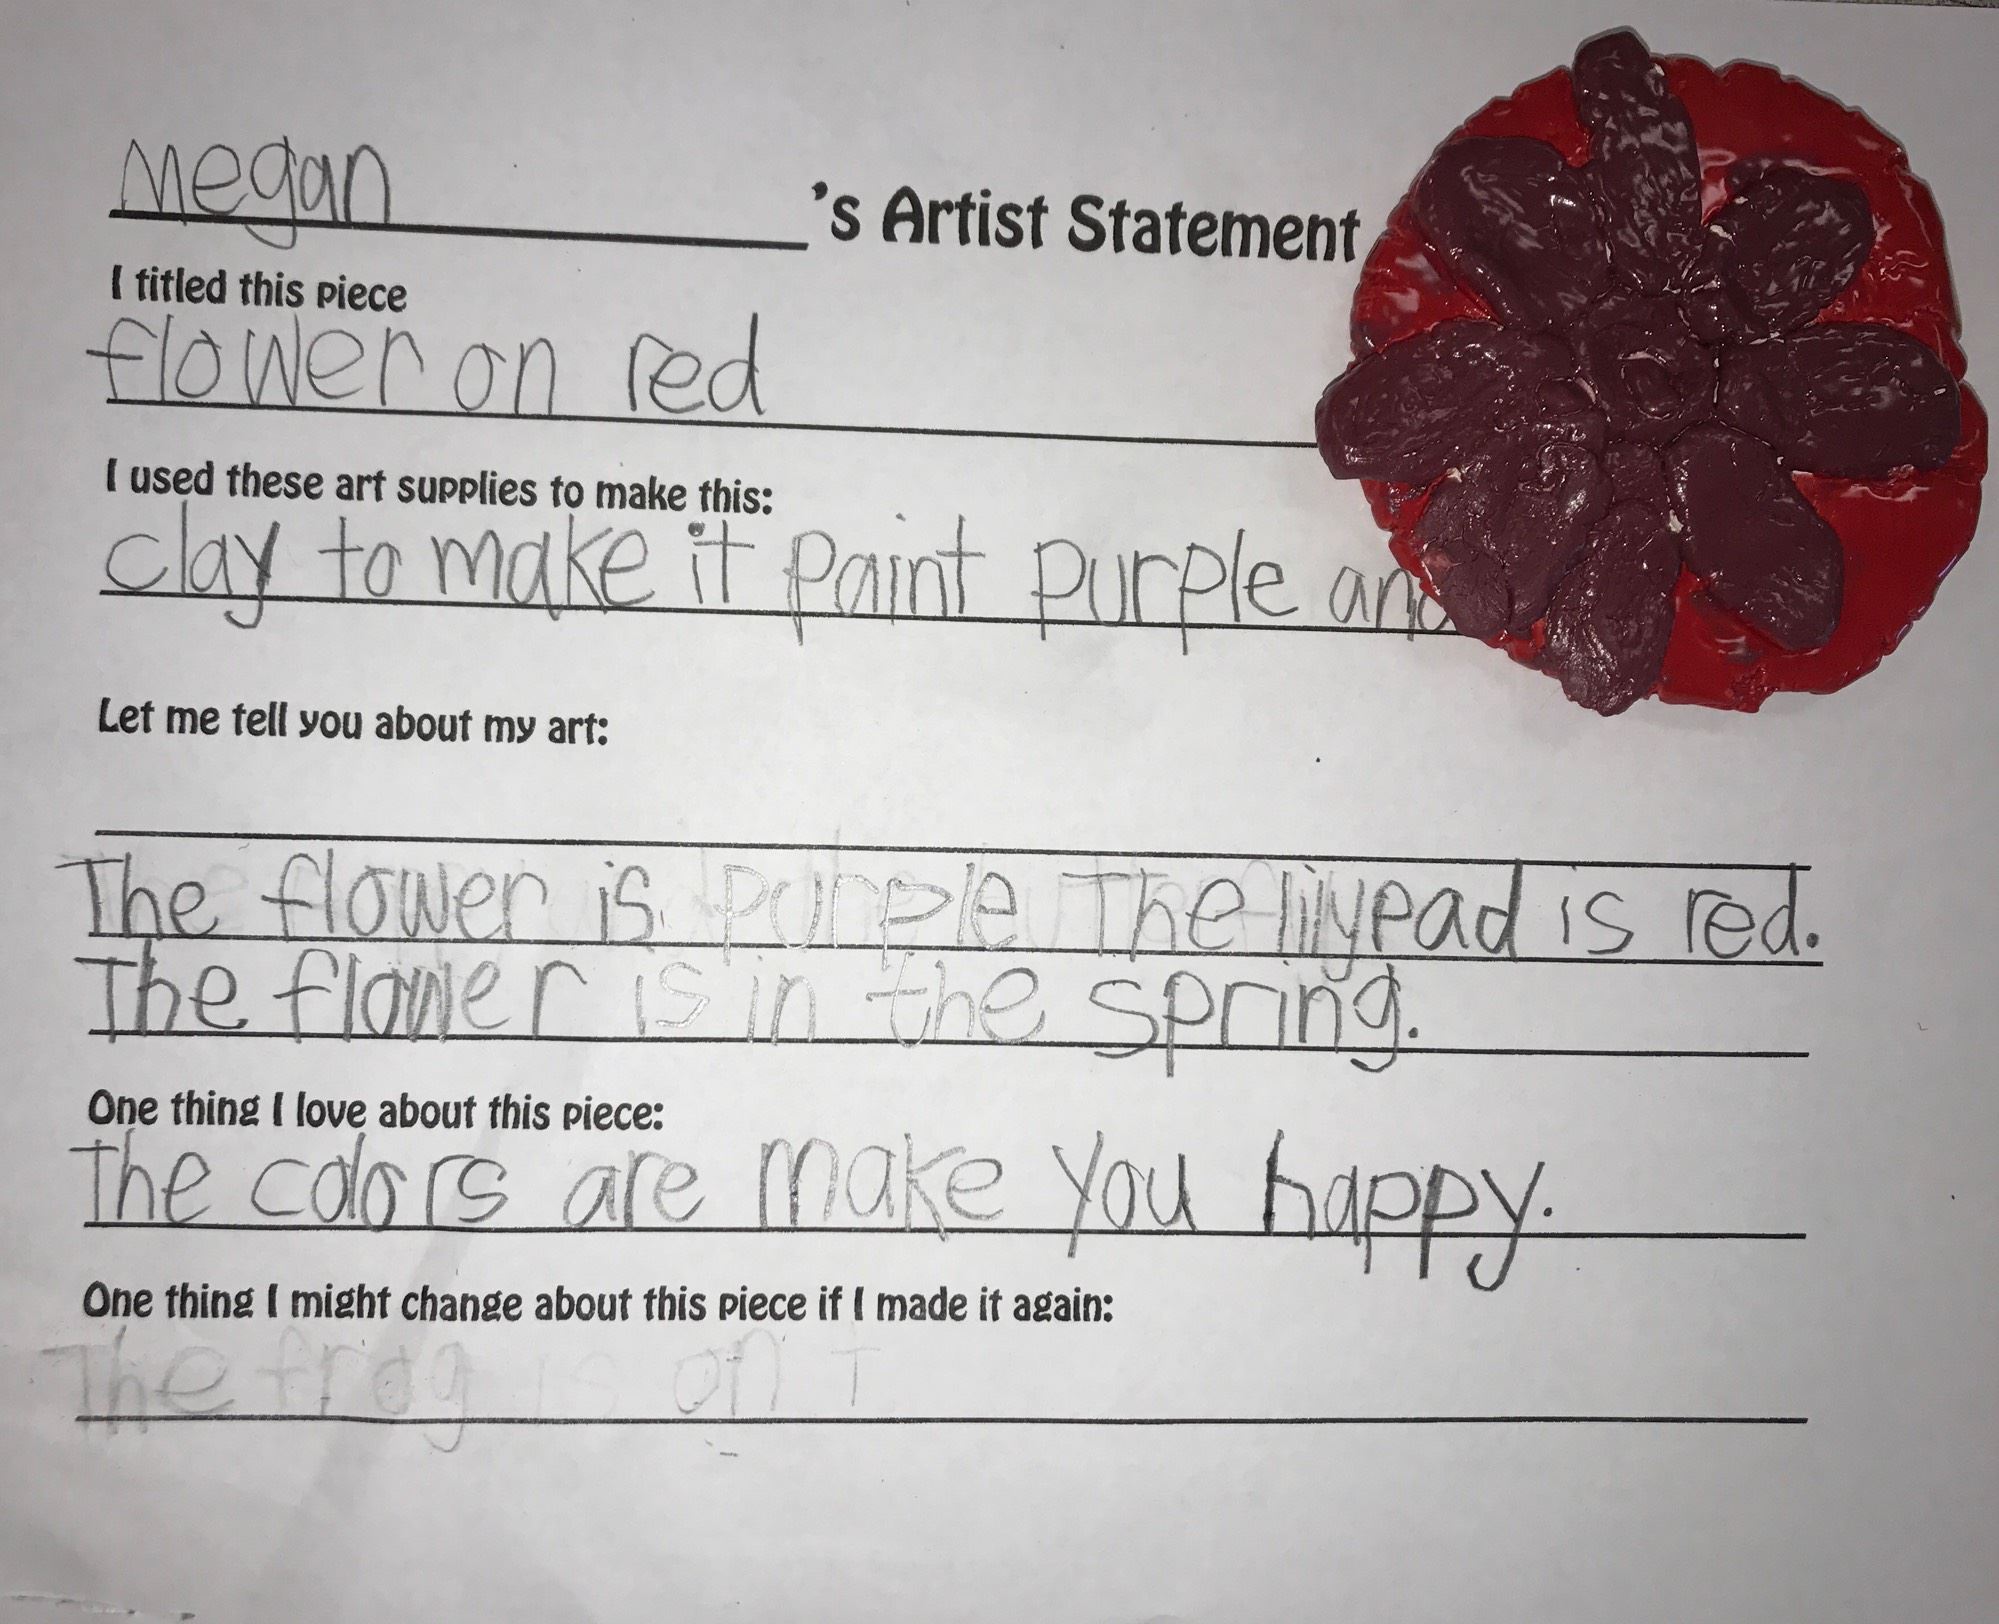 Megan 's Artist Statement
I titled this piece
flower on red
I used these art supplies to make this:
clay to make it paint purple and
Let me tell you about my art:
The flower is purple The lilypad is red.
The flower is in the spring.
One thing I love about this piece:
The colors are make you happy.
One thing I might change about this piece if I made it again:
The frog is on T